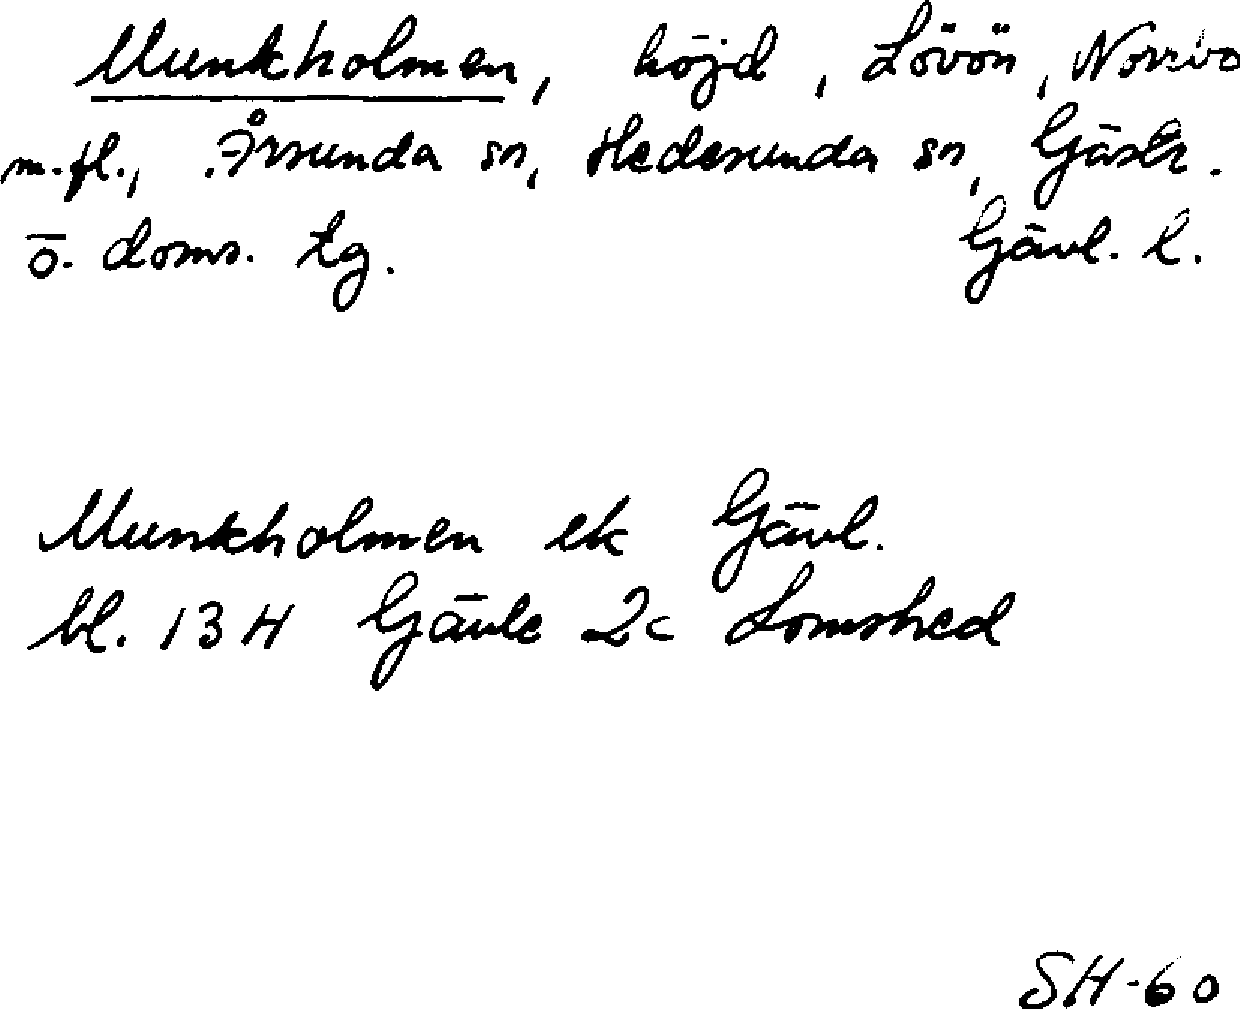 Munkholmen, höjd, Lövön, Norrbo
m.fl., Årsunda sn, Hedesunda sn, Gästr.
ö. doms. tg. Gävl. l.
Munkholmen ek Gävl.
bl. 13H Gävle 2c Lomshed
SH-60